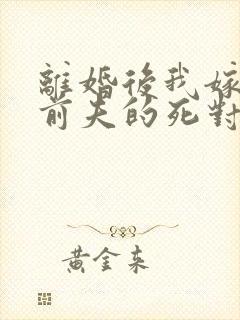 離婚後我嫁
前夫的死對
黃金來